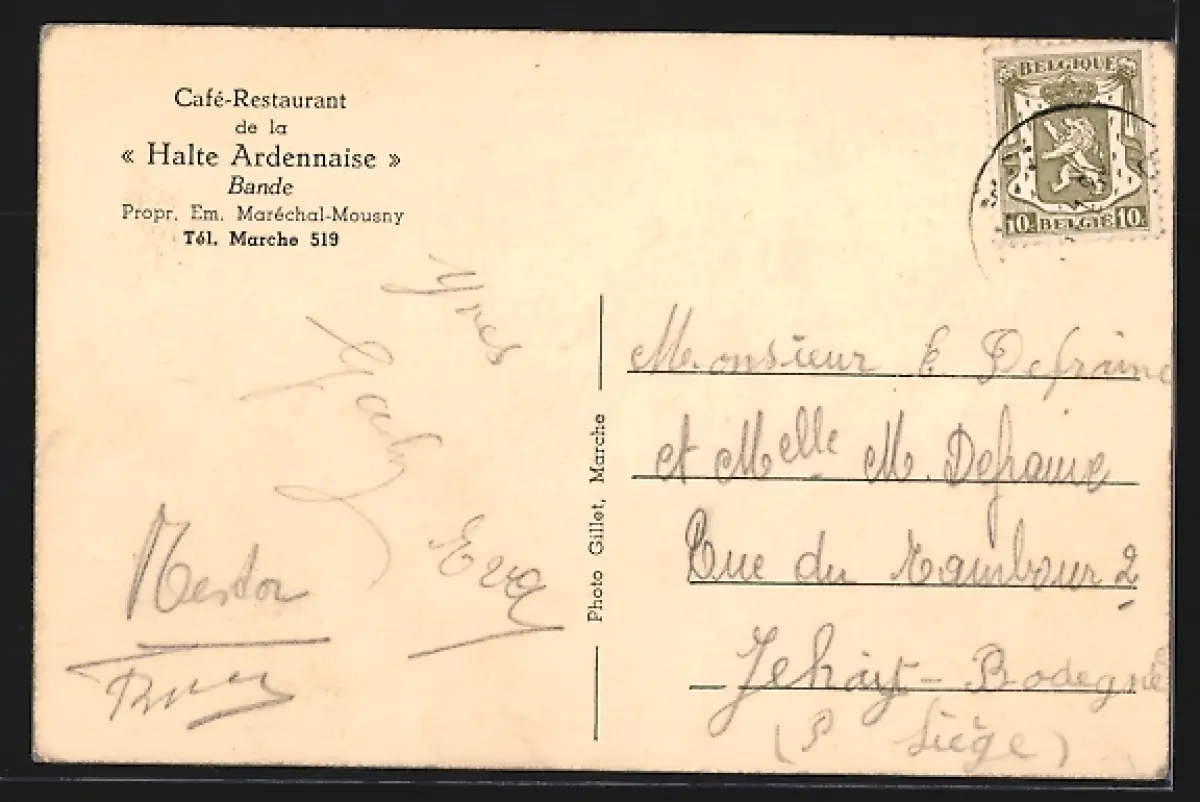 Café-Restaurant
de la
« Halte Ardennaise »
Bande
Propr. Em. Maréchal-Mousny
Tél. Marche 519
BELGIQUE
10 BELGIË 10
Yves
Gaby
Eva
Nestor
Photo Gillet, Marche
Monsieur E Defraine
et Melle M. Defraine
Rue du Tambour 2
Jehay-Bodegné
(P Liège)